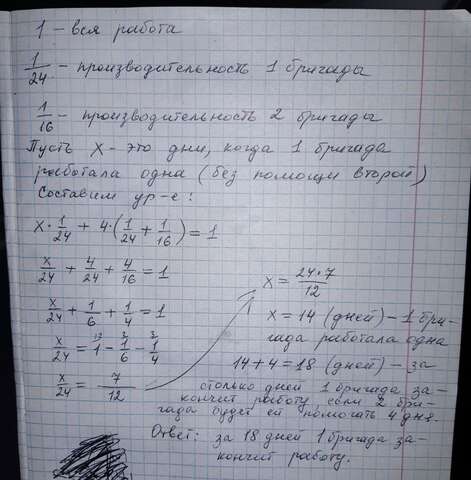 1 – вся работа
1/24 – производительность 1 бригады
1/16 – производительность 2 бригады
Пусть х – это дни, когда 1 бригада
работала одна (без помощи второй)
Составим ур-е:
x·1/24 + 4·(1/24 + 1/16) = 1
x/24 + 4/24 + 4/16 = 1
x/24 + 1/6 + 1/4 = 1
x/24 = 1 - 1/6 - 1/4
x/24 = 7/12
x = 24·7/12
x = 14 (дней) – 1 бри-
гада работала одна
14+4=18 (дней) – за
столько дней 1 бригада за-
кончит работу если 2 бри-
гада будет ей помогать 4 дня.
Ответ: за 18 дней 1 бригада за-
кончит работу.